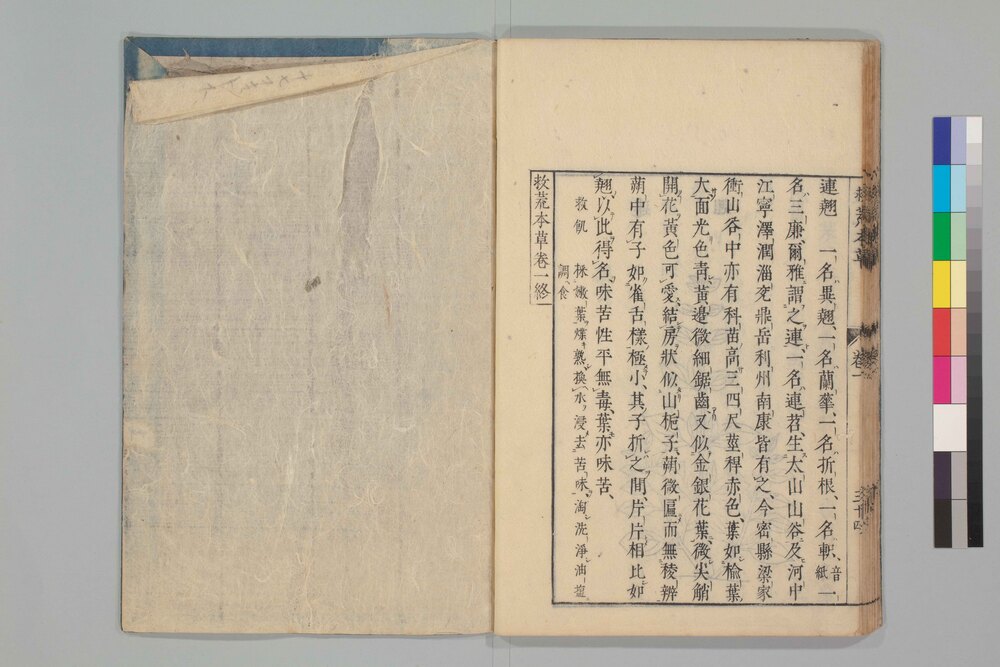 連翹 一名異翹、一名蘭華、一名折根、一名軹、音紙一
名三廉爾雅謂之連、一名連苕、生太山山谷及河中
江寧澤潤淄兗鼎岳利州南康皆有之、今密縣梁家
衝山谷中亦有科苗高三四尺莖稈赤色、葉如榆葉
大面光色青黃、邊微細鋸齒又似金銀花葉、微尖艄
開花黃色可愛、結房狀似山梔子蒴微匾而無稜瓣
蒴中有子如雀舌樣極小、其子折之間片片相比如
翹、以此得名味苦性平無毒葉亦味苦、
救飢 採嫩葉煠熟換水浸去苦味、淘洗淨油塩
調食
救荒本草卷一終
救荒本草
卷一
三十四